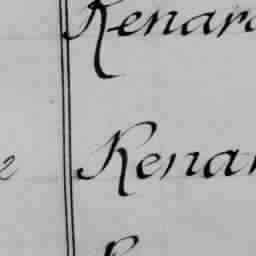 Renar
Renar